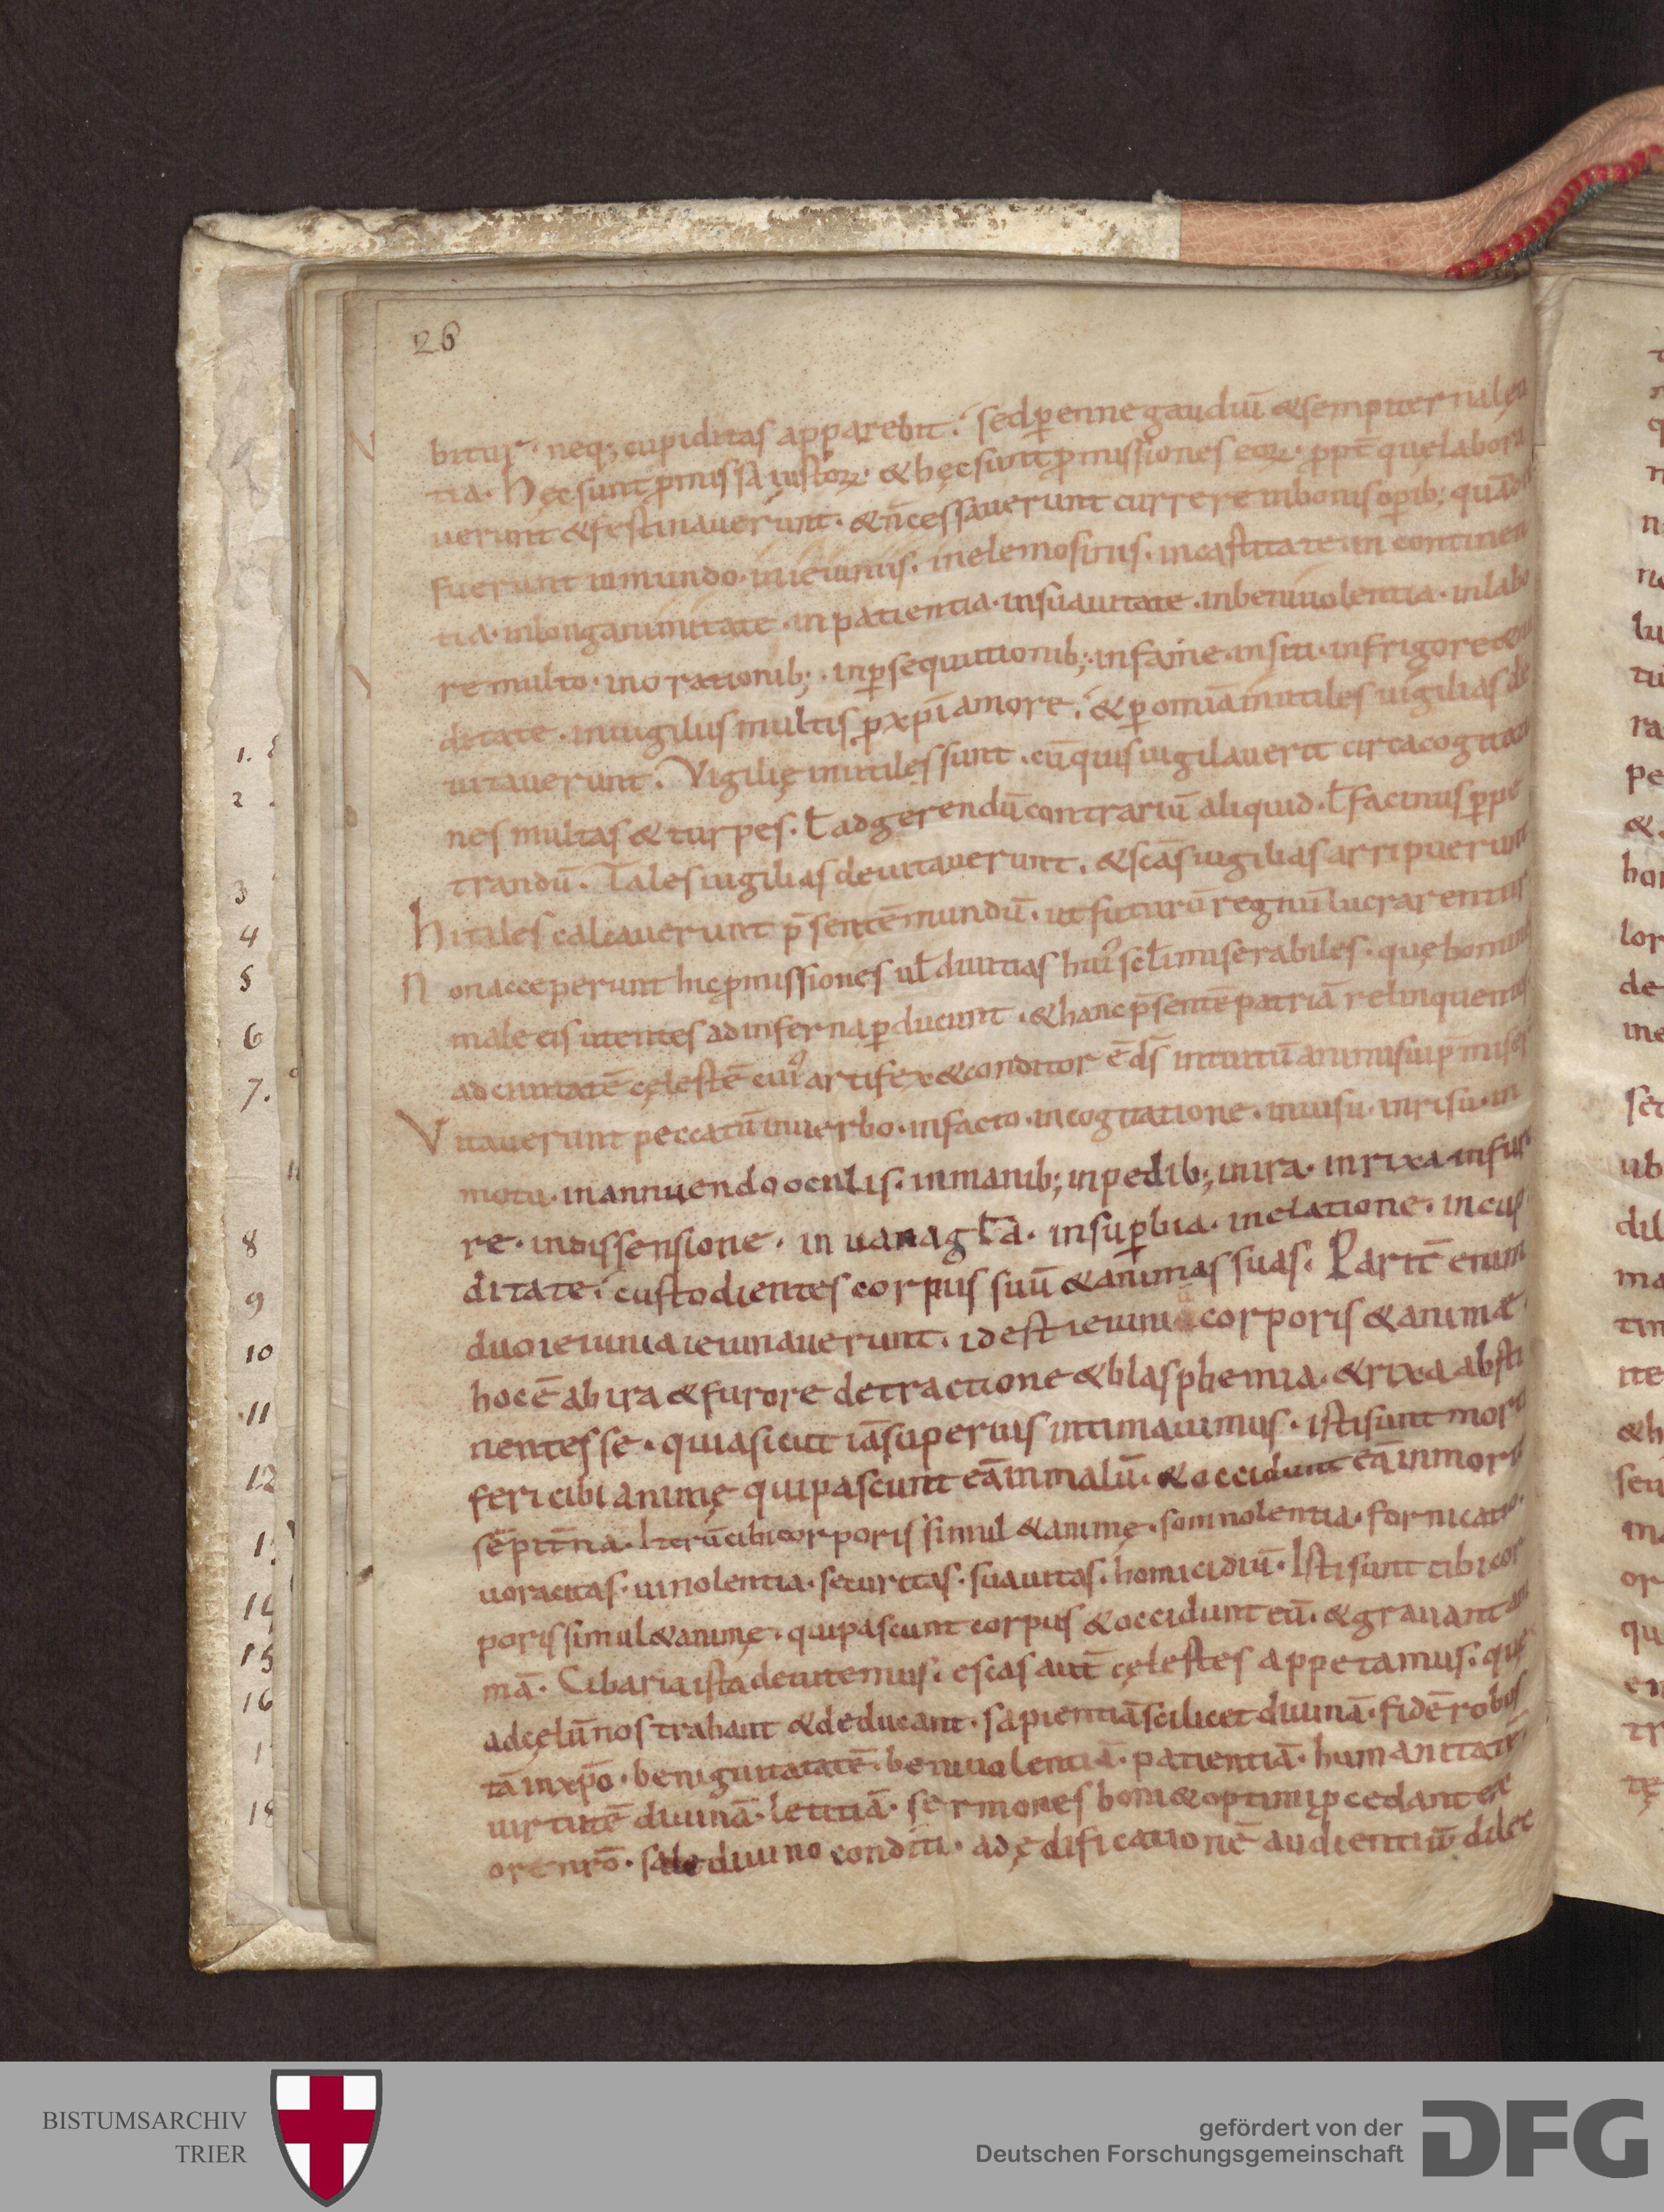 26
bitur · neq; cupiditas apparebit · sed p̱enne gaudiū & sempiternalęti
tia · Hęc sunt ꝓmissa iustoꝝ · & hęc sunt ꝓmissiones eoꝝ · ꝓpt̄ quę labora
uerunt & festinauerunt · & n̄ cessauerunt currere in bonis oꝑib; quādiu
fuerunt in mundo · in ieiuniis · in elemosinis · in castitate in continen
tia · in longanimitate · in patientia · in suauitate · in beniuolentia · in labo
re multo · in orationib; · in ꝑsequutionib; · in fame · in siti · in frigore & nu
ditate · in uigiliis multis ꝑ xp̄i amore · & ꝑ omnia inutiles uigilias de
uitauerunt · Vigilię inutiles sunt · cū quis uigilauerit circa cogitatio
nes multas & turpes · ł ad gerendū contrariū aliquid · ł facinus ꝑpe
trandū · Tales uigilias deuitauerunt · & scās uigilias arripuerunt
Hi tales calcauerunt p̄sentē mundū · ut futurū regnū lucrarentur
Non acceperunt hic ꝓmissiones ul̄ diuitias hui᾽ scl̄i miserabiles · quę homines
male eis utentes ad inferna ꝑducunt · & hanc p̄sentē patriā relinquentes
ad ciuitatē cęlestē cui᾽ artifex & conditor ē ds̄ intuitū animi sui p̄miser
Vitauerunt peccatū in uerbo · in facto · in cogitatione · in uisu · in risu · in
motu · in annuendo oculis · in manib; in pedib; in ira · in rixa · in furo
re · in dissensione · in uana gl̄a · in suꝑbia · in elatione · in cupi
ditate · custodientes corpus suū & animas suas · Parit̄ enim
duo ieiunia ieiunauerunt · id est ieiuniū corporis & animæ ·
hoc ē ab ira & furore detractione & blasphemia · & rixa absti
nentes se · quia sicut iā superius intimauimus · isti sunt morti
feri cibi animę qui pascunt eā in malū · & occidunt eā in mortē
sēpitn̄a · Iterū cibi corporis simul & animę · somnolentia · fornicatio ·
uoracitas · uinolentia · securitas · suauitas · homicidiū · Isti sunt cibi cor
poris simul & animę · qui pascunt corpus & occidunt eū · & grauant ani
mā · Cibaria ista deuitemus · escas aut̄ cęlestes appetamus · quę
ad cęlū nos trahant & deducant · sapientiā scilicet diuinā · fidē robus
tā in xp̄o · benignitatē · beniuolentiā · patientiā · humanitatē
uirtutē diuinā · letitiā · sermones boni & optimi ꝓcedant ex
ore nr̄o · sale diuino conditi · ad ędificationē audientiū dilec
1.
2
3
4
5
6
7.
8
9
10
11
12
15
16
18
BISTUMSARCHIV
TRIER
gefördert von der
Deutschen Forschungsgemeinschaft
DFG